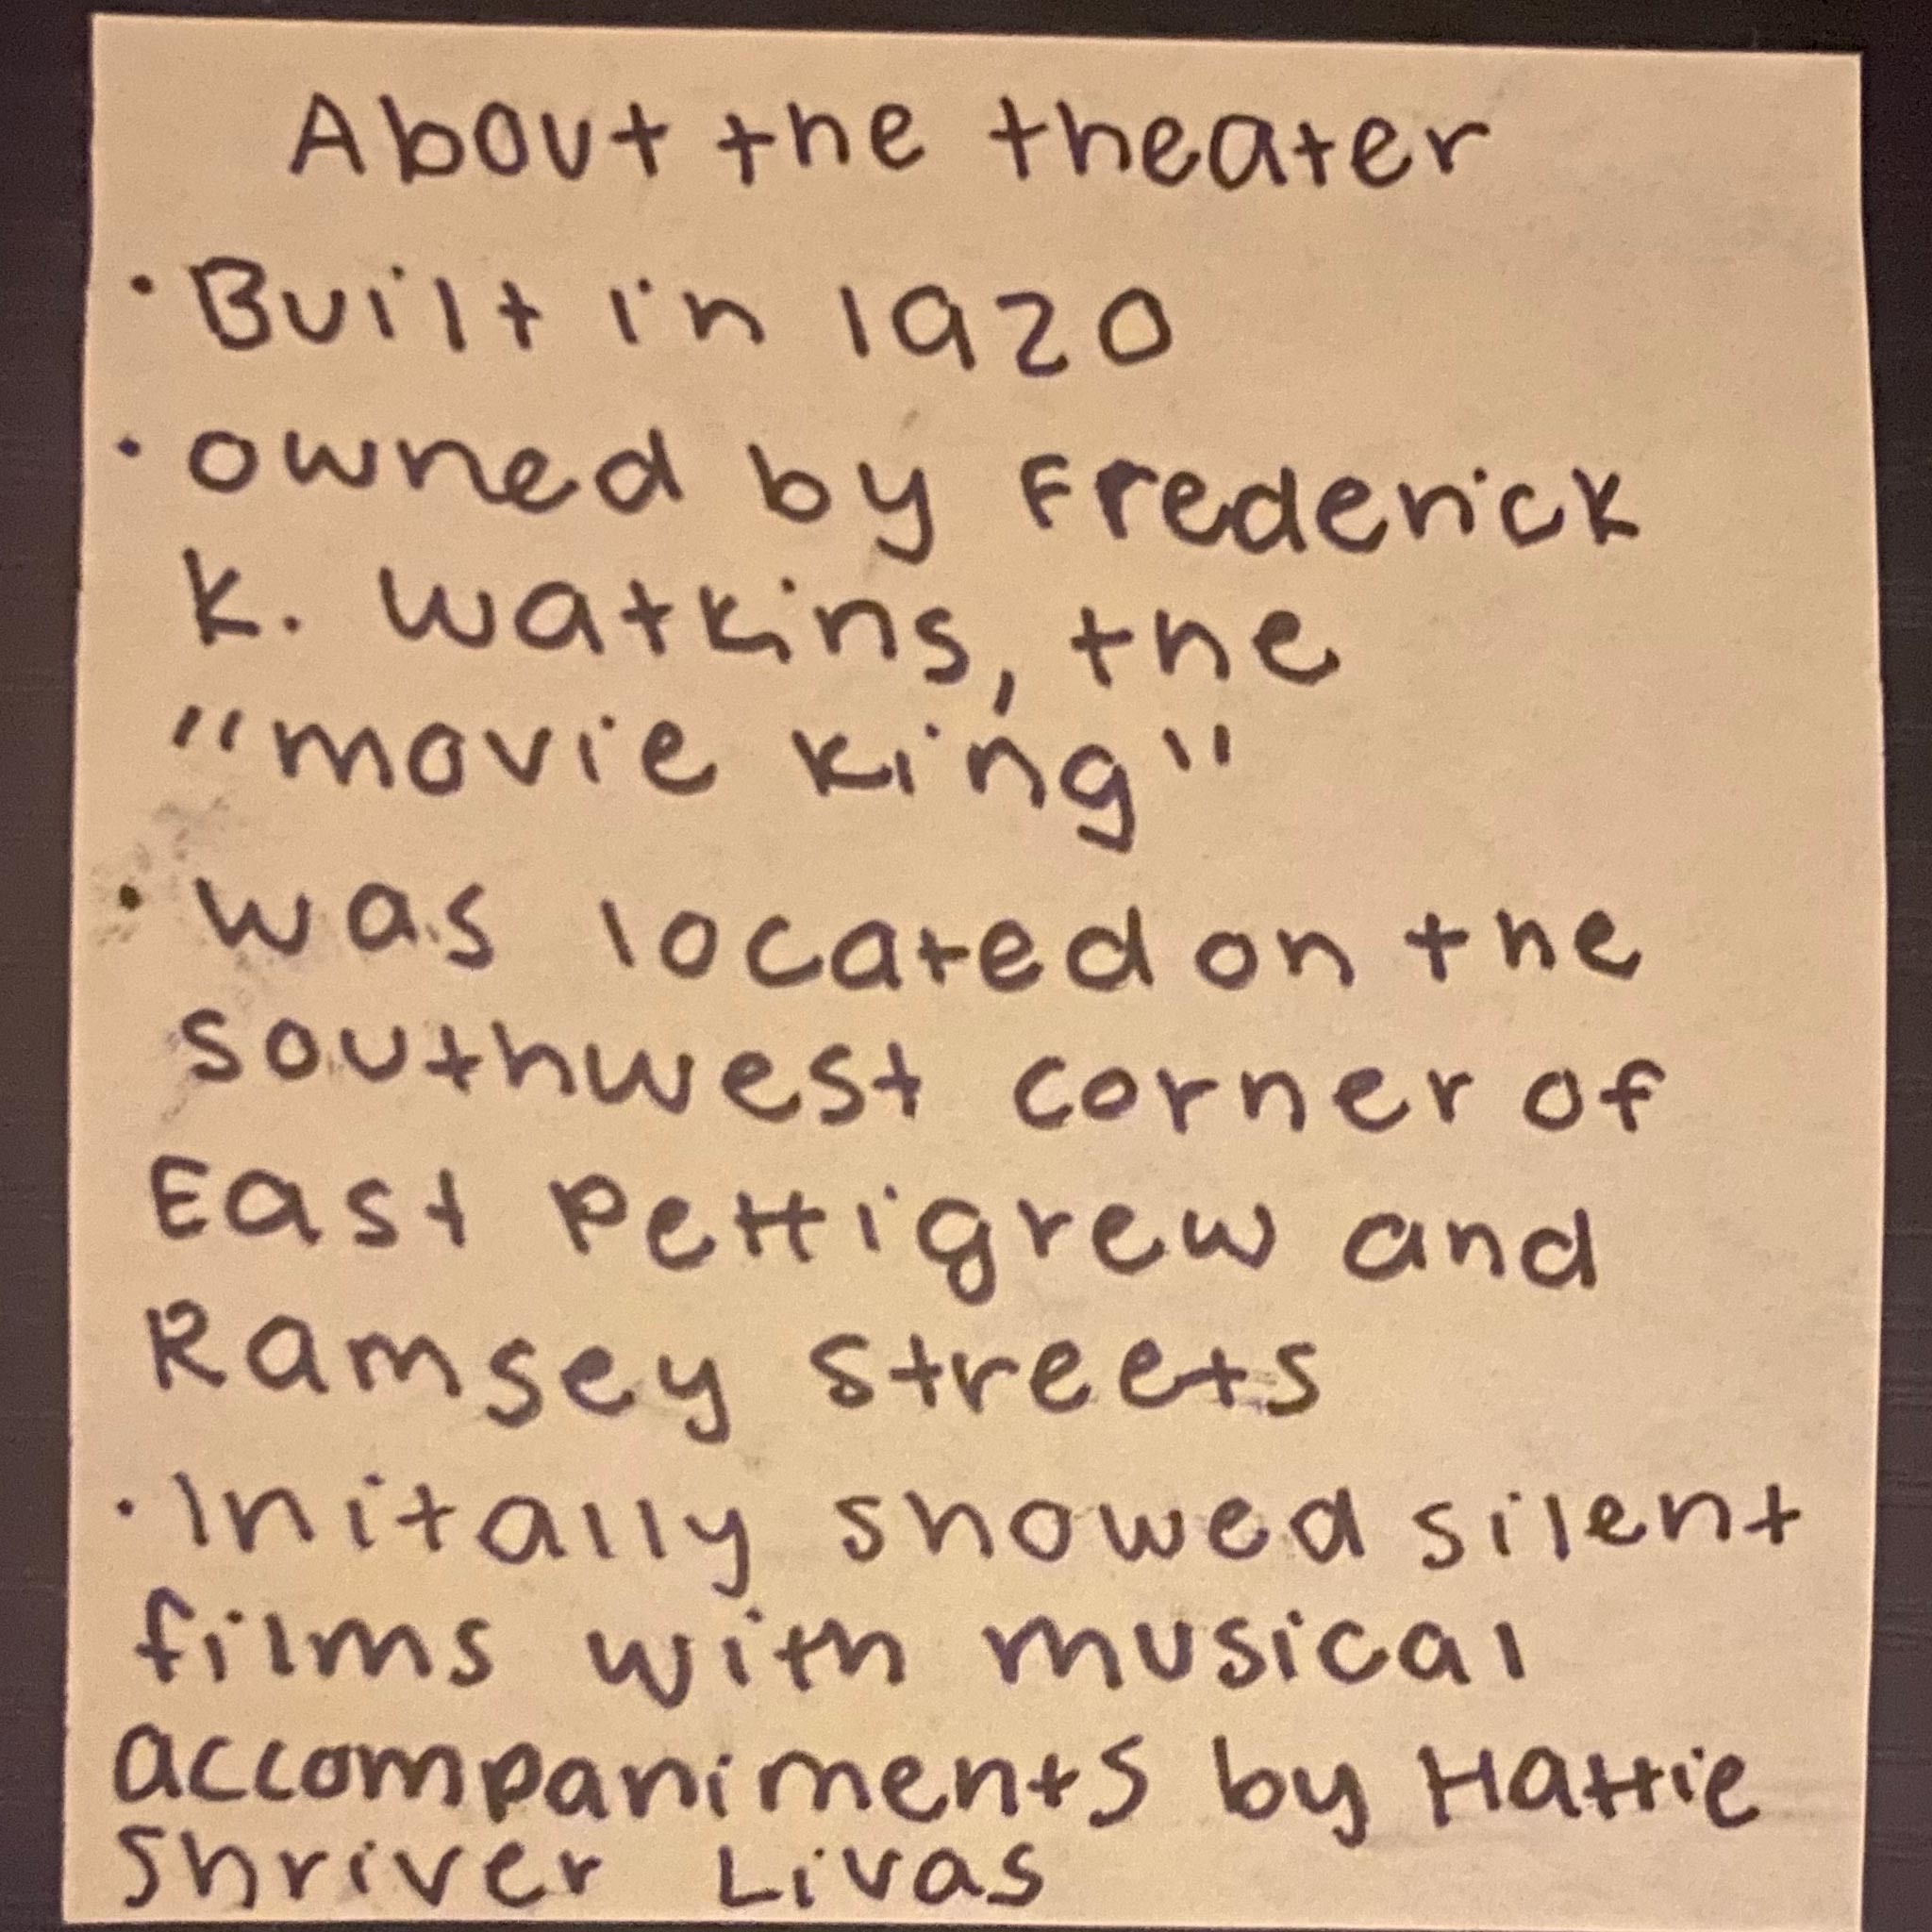 About the theater
• Built in 1920
• owned by Frederick
K. Watkins, the
"movie king"
• was located on the
southwest corner of
East Pettigrew and
Ramsey streets
• Initally showed silent
films with musical
accompaniments by Hattie
Shriver Livas